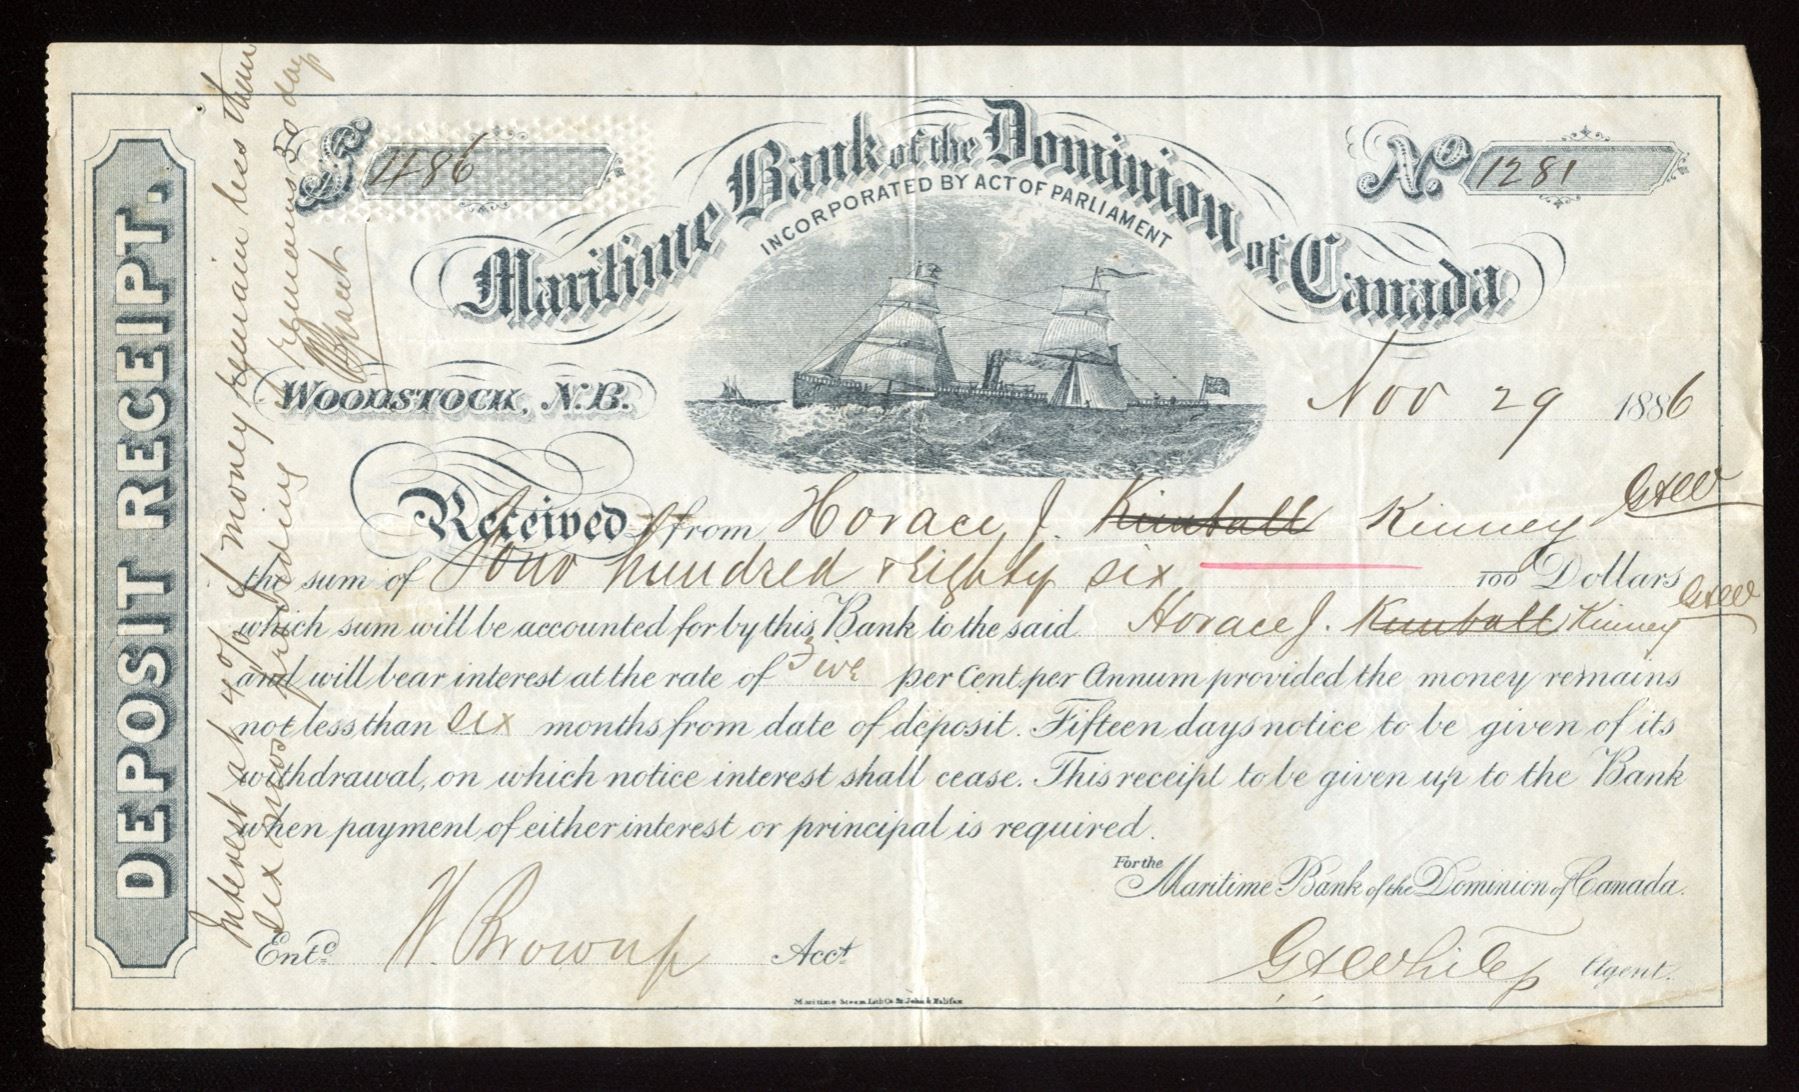 DEPOSIT RECEIPT.
Interest at 4% if money remain less than
six mos providing it remains 30 days
$ 486
No 1281
Maritime Bank of the Dominion of Canada
INCORPORATED BY ACT OF PARLIAMENT
WOODSTOCK, N.B.
Nov 29 1886
Received from Horace J. Kimball Kinney GHW
the sum of Four hundred & Eighty six 100 Dollars
which sum will be accounted for by this Bank to the said Horace J. Kimball Kinney GHW
and will bear interest at the rate of Five per Cent. per Annum provided the money remains
not less than six months from date of deposit. Fifteen days notice to be given of its
withdrawal, on which notice interest shall cease. This receipt to be given up to the Bank
when payment of either interest or principal is required.
For the
Maritime Bank of the Dominion of Canada.
Entd. W. Brown Acct
G H White Agent.
Maritime Steam Lith Co St. John & Halifax